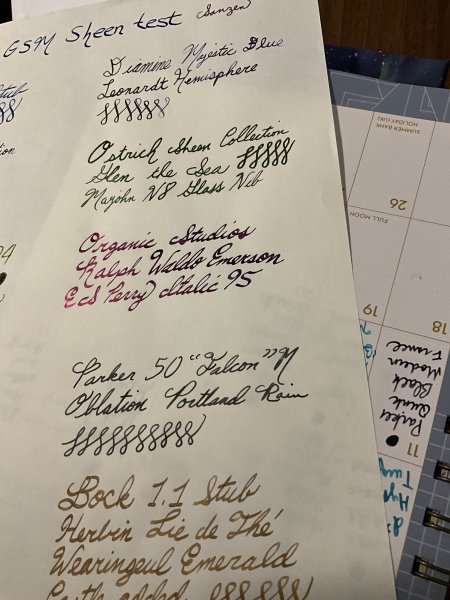 GSM Sheen test (Sanzen)
Diamine Majestic Blue
Leonardt Hemisphere
Ostrich Sheen Collection
Glen de Sea
Majohn N8 Glass Nib
Organic Studios
Ralph Waldo Emerson
E+S Perry Italic 95
Parker 50 "Falcon" M
Oblation Portland Rain
Bock 1.1 Stub
Herbin Lie de Thé
Wearingeul Emerald
added
Stub
SUMMER BANK
HOLIDAY (UK)
26
FULL MOON
19
18
Parker
Quink
Black
Modern
France
11